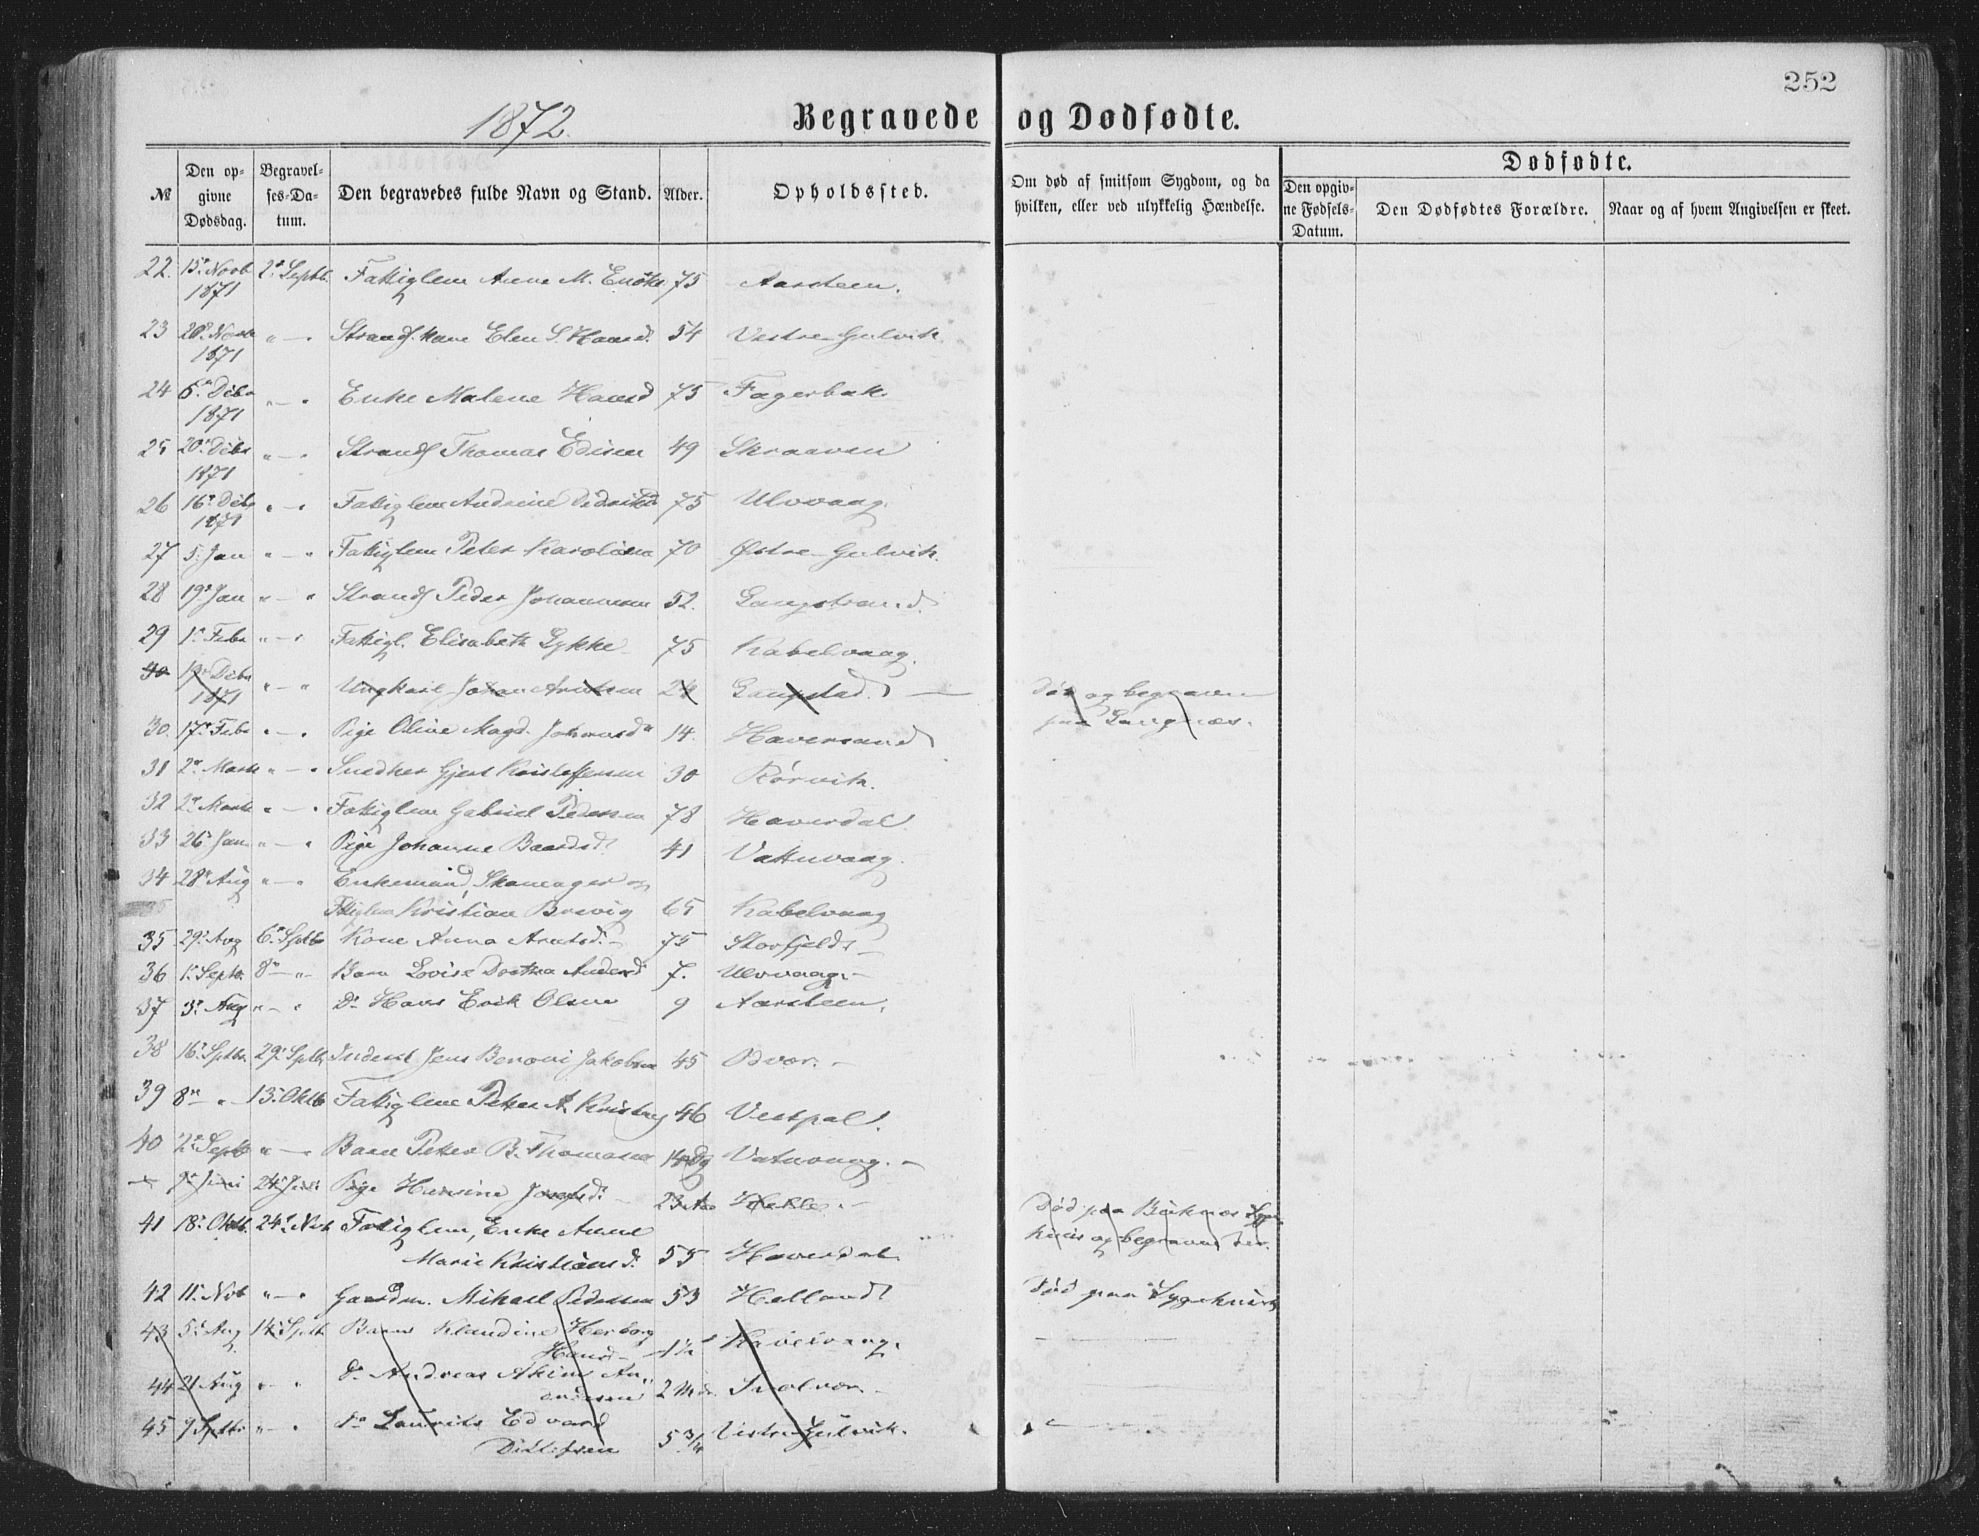 252
1872.
Begravede og Dødfødte.
№
Den opgivne Dødsdag.
Begravelses-Datum.
Den begravedes fulde Navn og Stand.
Alder.
Opholdssted.
Om død af smitsom Sygdom, og da hvilken, eller ved ulykkelig Hændelse.
Dødfødte.
Den opgivne Fødsels-Datum.
Den Dødfødtes Forældre.
Naar og af hvem Angivelsen er skeet.
22. 15. Novb 1871 2. Septb. Fattiglem Anne M. 75 Aarsteen.
23 1871 " — " Strands. Kone Elen S. Hansd. 54 Vestre Gulvik.
24 6. Dcbr 1871 " — " Enke Malene Hansd 75 Fagerbak.
25 20. Dcbr 1871 " — " Strands Thomas 49 Skraaven
26 16. Dcbr 1871 " — " Fattiglem Andrine 75 Ulvvaag.
27 5. Jan " — " Fattiglem Peter 70 Østre Gulvik.
28 19. Jan " — " Strands Peder Johannesen 52. Langstrand.
29 1. Febr " — " Fattigl. Elisabeth Lykke 75 Kabelvaag.
30 Dcbr 1871 " — " Ungkarl Johan Arntsen Død og begraven
paa Langnæs.
30. 17. Febr " — " Pige Oline Magd. Johansdr 14. Haversand
31 2. Marts " — " Snedker Gjert Kristoffersen 30 Rørvik.
32 2. Marts " — " Fattiglem Gabriel Pedersen 78 Haverdal
33 26. Jan " — " Pige Johanne Baardsd. 41 Vatnvaag.
34 28. Aug " — " Enkemand, Skomager og
Fttiglem Kristian Brevig 65 Kabelvaag
35 29. Aug 6. Septbr Kone Anna Arntsd. 75 Storfjeld
36 1. Septbr. 8 — " Barn Lovise Dorthea Andersd 7. Ulvvaag. —
37 3. Aug " — " Do Hans Erik Olsen 9 Aarsteen.
38 16. Sptbr. 29. Sptb. Inderst Jens Jakobsen 45 —
39 8 — " 13. Oktb Fattiglem Peter A. 46 Vestpol.
40 2. Septb " — " Barn Peter B. Thomasen 14 Dg Vatnvaag. —
— 9. Juni 24. Juni Pige Hansine 23 Aar Helle. — Død paa
og begraven der.
41 18. Oktb. 24. Nvb Fattiglem, Enke Anne
Marie Kristiansd. 55 Haverdal.
42 11. Nvb " — " Gaardm. Mikael Pedersen 53 Helland Død paa Sygehuset
43 5. Aug 14. Sptb Barn Klaudine Herborg
Hansd — 1½ Kabelvaag.
44 21 Aug " " do Andreas
andersen 2 Md. Svolvær. —
45 7 Sptbr " — " do Laurits Edvard
Ditlefsen 5 ¾ Vestre Gulvik.